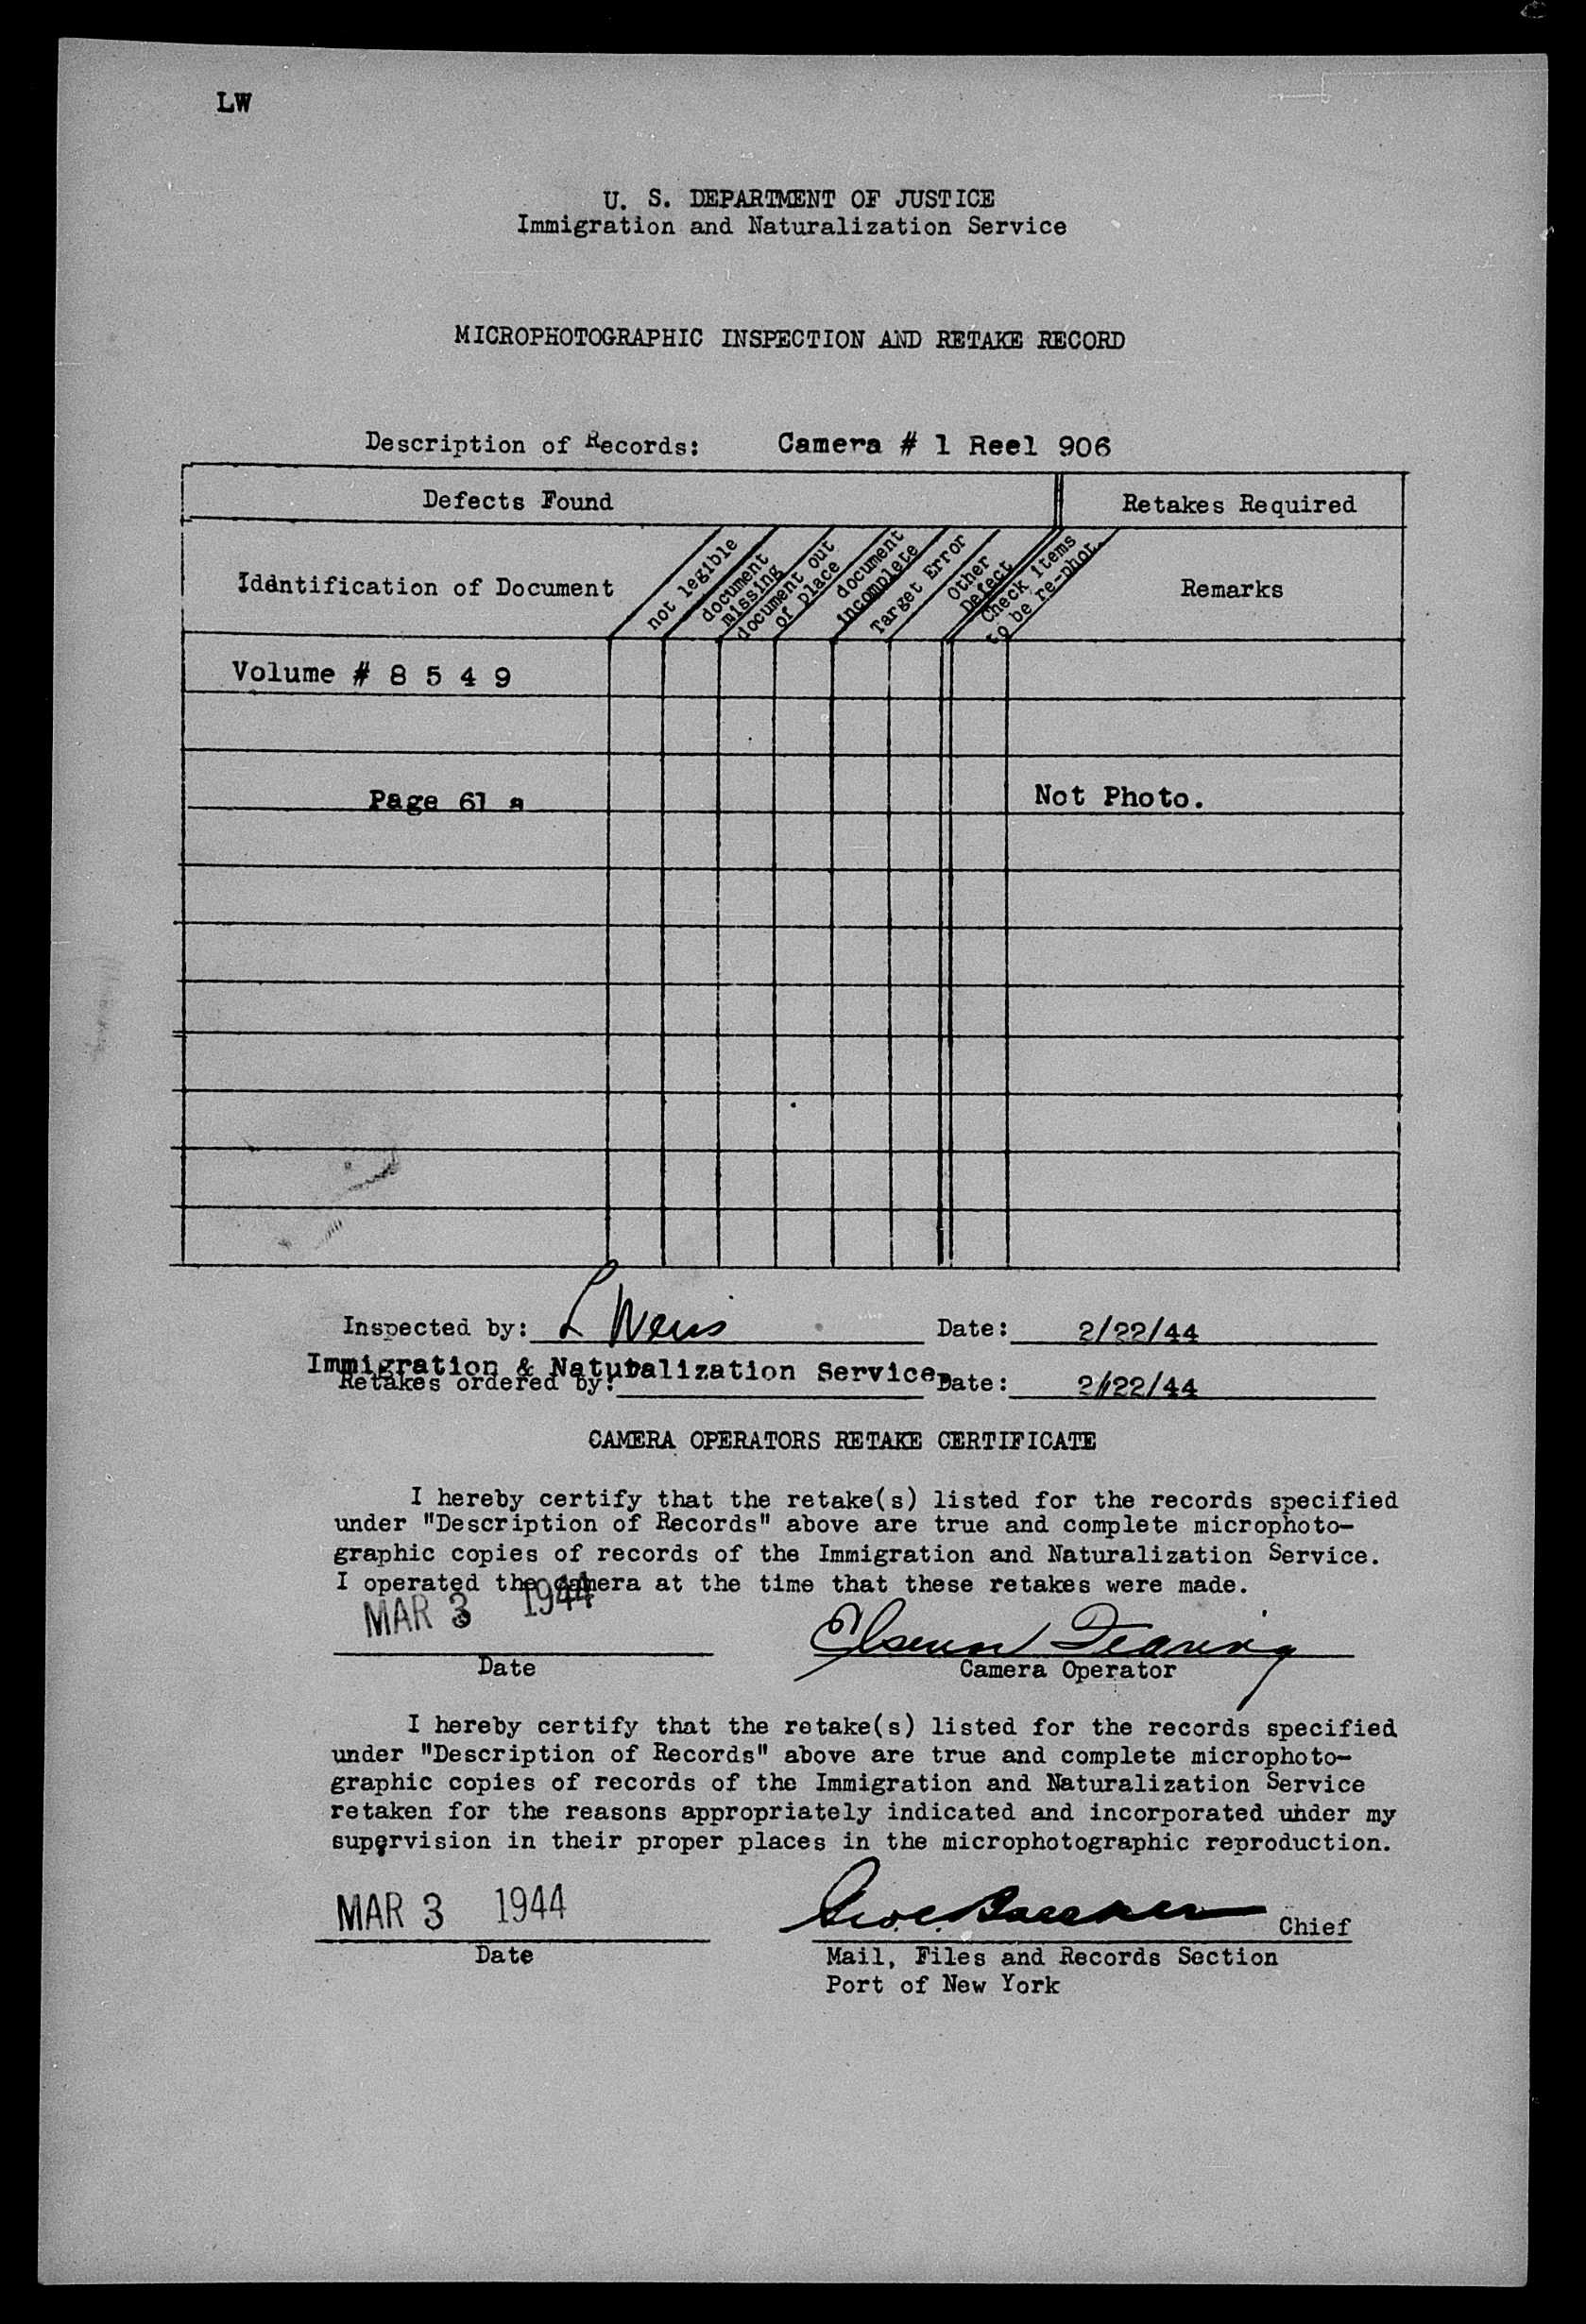 LW
U. S. DEPARTMENT OF JUSTICE
Immigration and Naturalization Service
MICROPHOTOGRAPHIC INSPECTION AND RETAKE RECORD
Description of Records: Camera # 1 Reel 906
Defects Found
Retakes Required
Idantification of Document
not legible
document missing
document out of place
document incomplete
Target Error
Other Defect
Check Items to be re-phot.
Remarks
Volume # 8 5 4 9
Page 61 a
Not Photo.
Inspected by: L Weis Date: 2/22/44
Immigration & Naturalization Service.
Retakes ordered by: Date: 2/22/44
CAMERA OPERATORS RETAKE CERTIFICATE
I hereby certify that the retake(s) listed for the records specified
under "Description of Records" above are true and complete microphoto-
graphic copies of records of the Immigration and Naturalization Service.
I operated the camera at the time that these retakes were made.
MAR 3 1944
Date
Camera Operator
I hereby certify that the retake(s) listed for the records specified
under "Description of Records" above are true and complete microphoto-
graphic copies of records of the Immigration and Naturalization Service
retaken for the reasons appropriately indicated and incorporated under my
supervision in their proper places in the microphotographic reproduction.
MAR 3 1944
Chief
Date
Mail, Files and Records Section
Port of New York